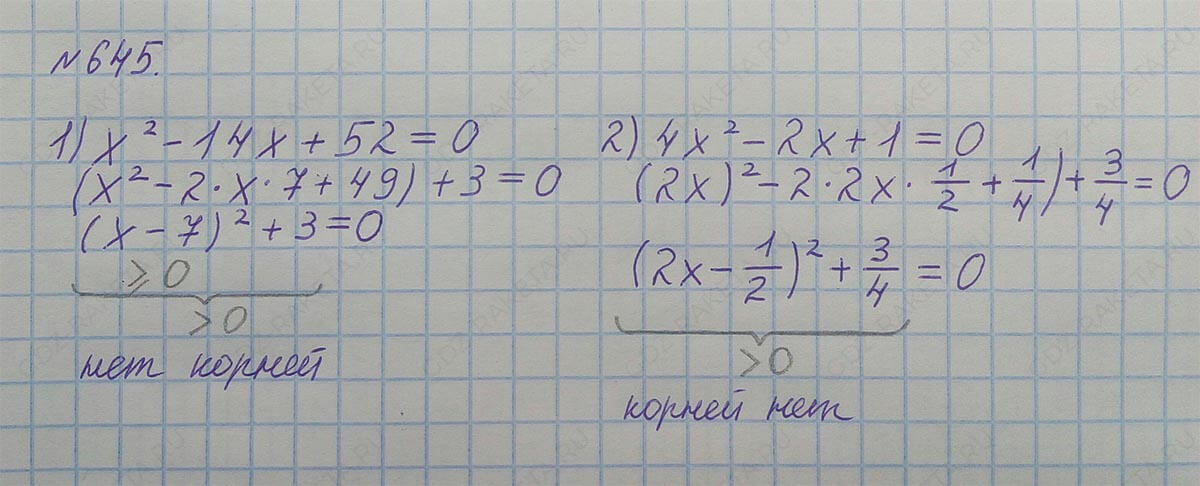 №645.
1) x² - 14x + 52 = 0
(x² - 2·x·7 + 49) + 3 = 0
(x - 7)² + 3 = 0
⩾ 0
> 0
нет корней
2) 4x² - 2x + 1 = 0
(2x)² - 2·2x·1/2 + 1/4) + 3/4 = 0
(2x - 1/2)² + 3/4 = 0
> 0
корней нет